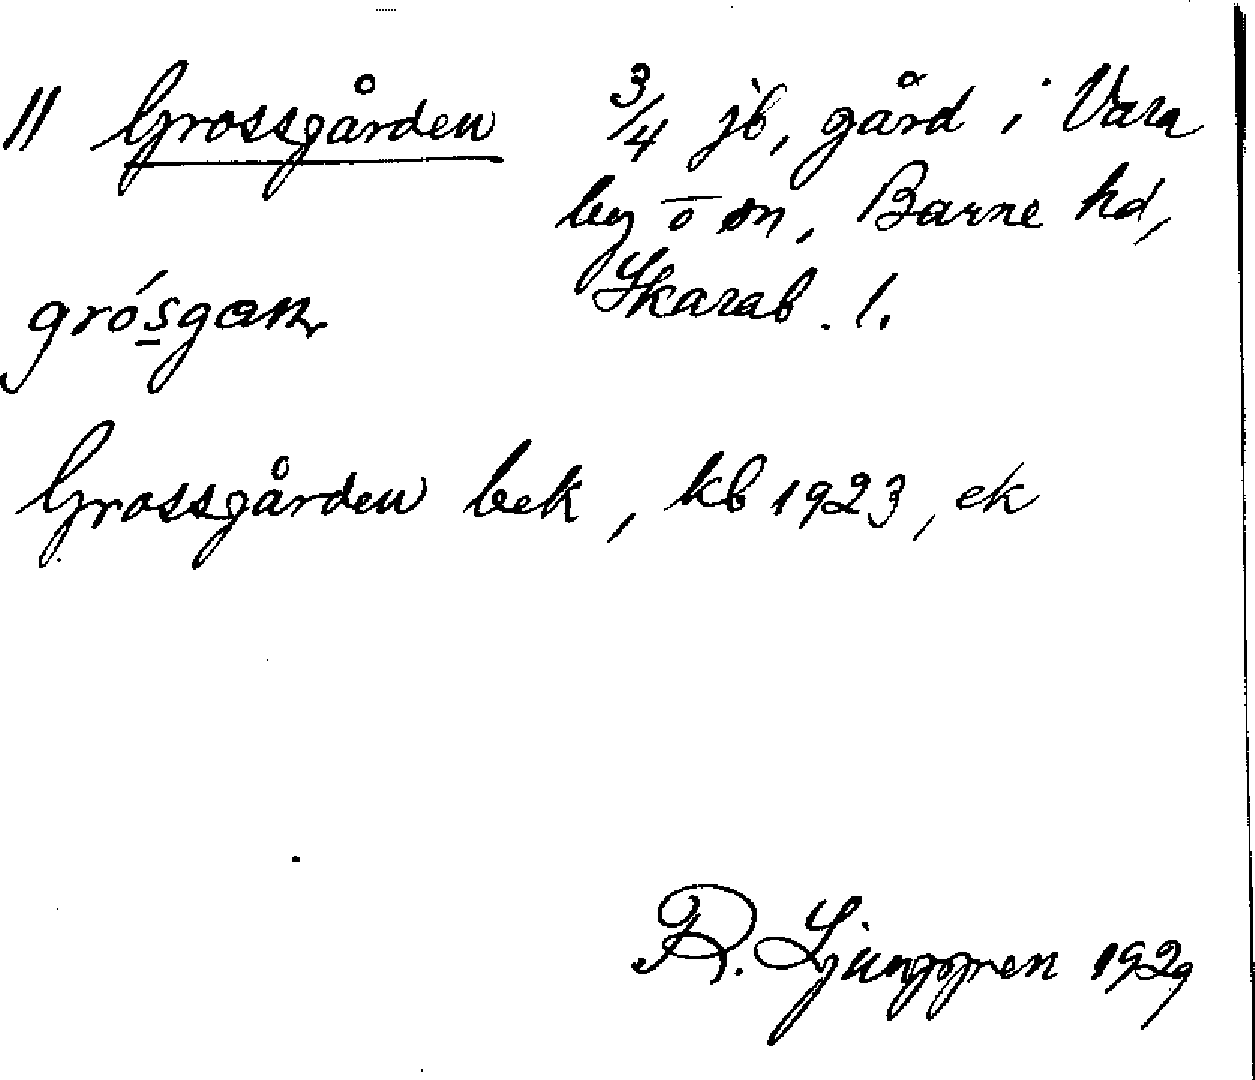 11 Grossgården 3/4 jb, gård i Vara
by o sn, Barne hd,
Skarab. l.
grósgan
Grossgården bek, kb 1923, ek
R. Ljunggren 1929